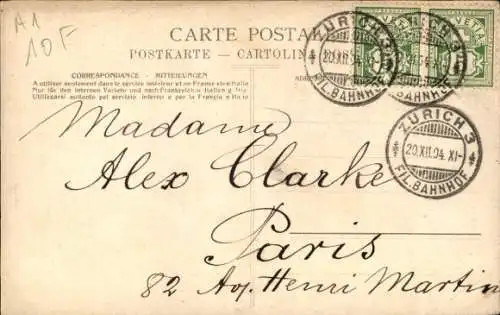 A1
10F
CARTE POSTA
POSTKARTE - CARTOLIN
CORRESPONDANCE - MITTEILUNGEN
A utiliser seulement dans le service intérieur et avec la France et en Italie
Nur für den internen Verkehr und nach Frankreich u. Italien g
Utilizzarsi soltanto pel servizio interno e per la Francia e Italia
HELVETIA
ZÜRICH 3
20.XII.04
FIL.BAHNHOF
5
ZÜRICH 3
20.XII.04. XI-
FIL.BAHNHOF
Madame
Alex Clarke
Paris
82 Av. Henri Martin